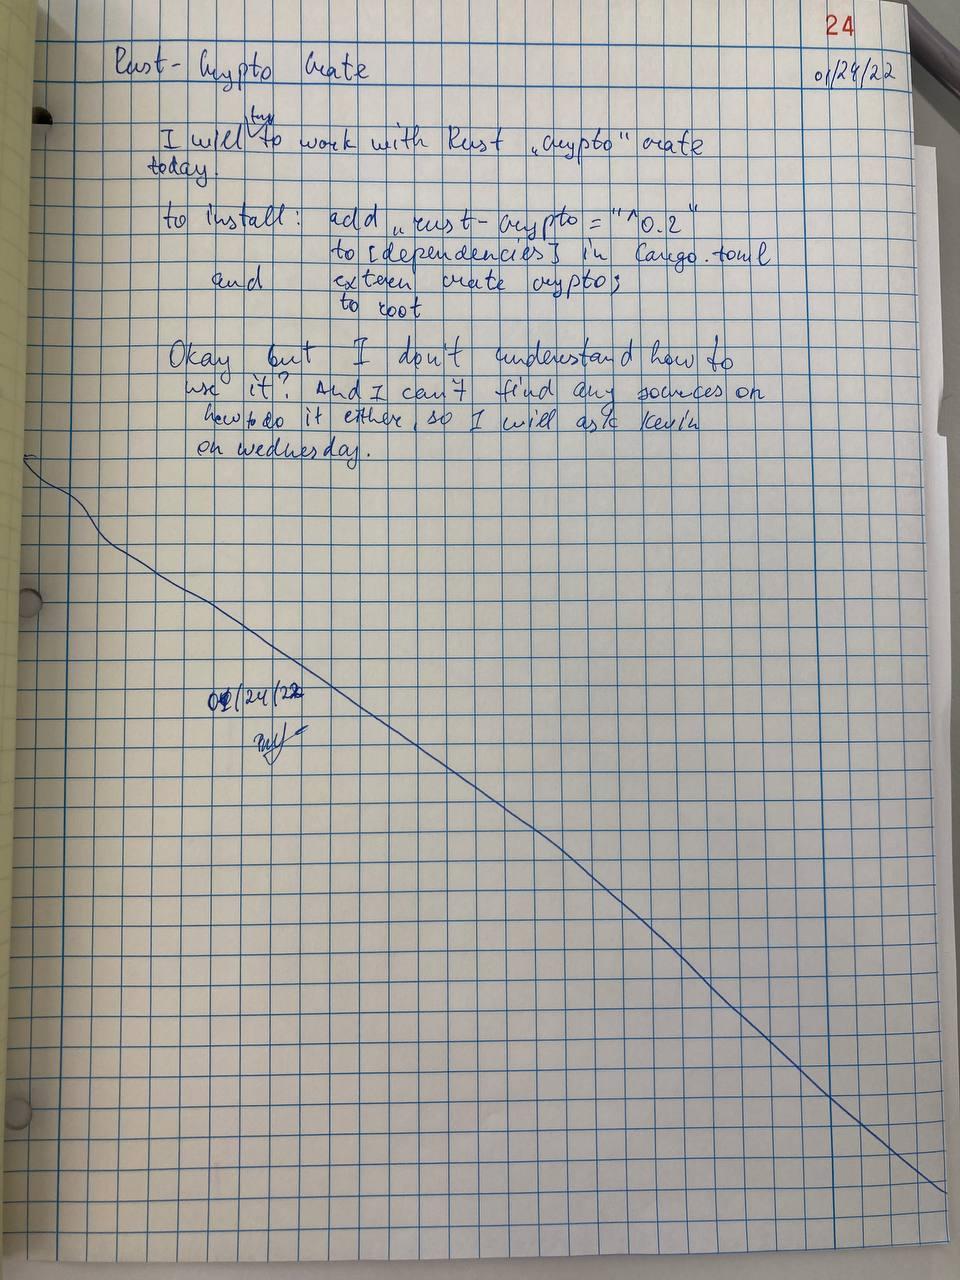 24
Rust-Crypto Crate
01/24/22
try
I will to work with Rust „crypto" crate
today.
to install: add „rust-crypto = "^0.2"
to [dependencies] in Cargo.toml
and extern crate crypto;
to root
Okay but I don't understand how to
use it? And I can't find any sources on
how to do it either, so I will ask Kevin
on wednesday.
01/24/22